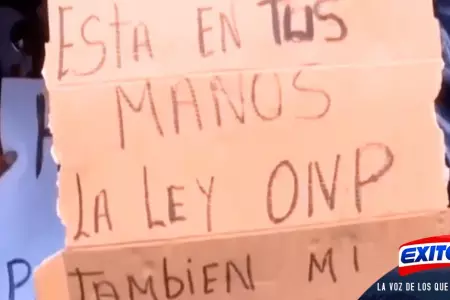 ESTA EN TUS
MANOS
LA LEY ONP
TAMBIEN MI
P
EXITO
LA VOZ DE LOS QUE